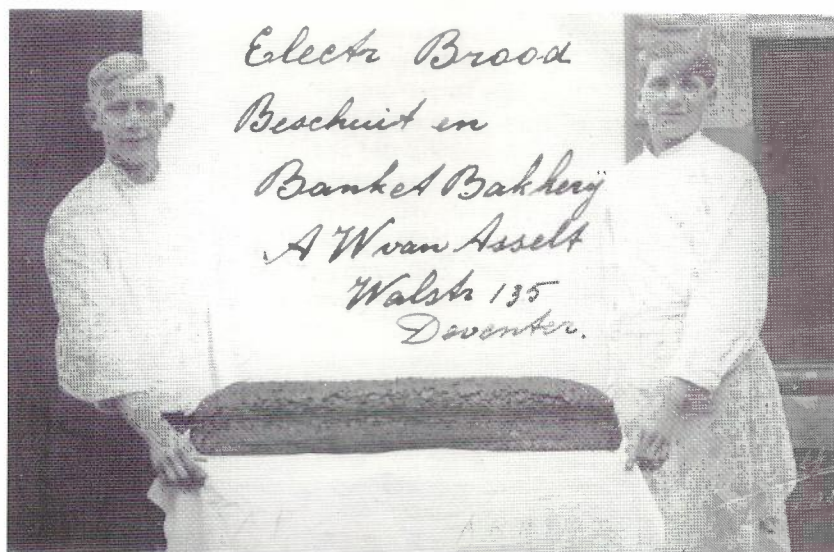 Electr Brood
Beschuit en
Banket Bakkerij
A W van Asselt
Walstr 135
Deventer.